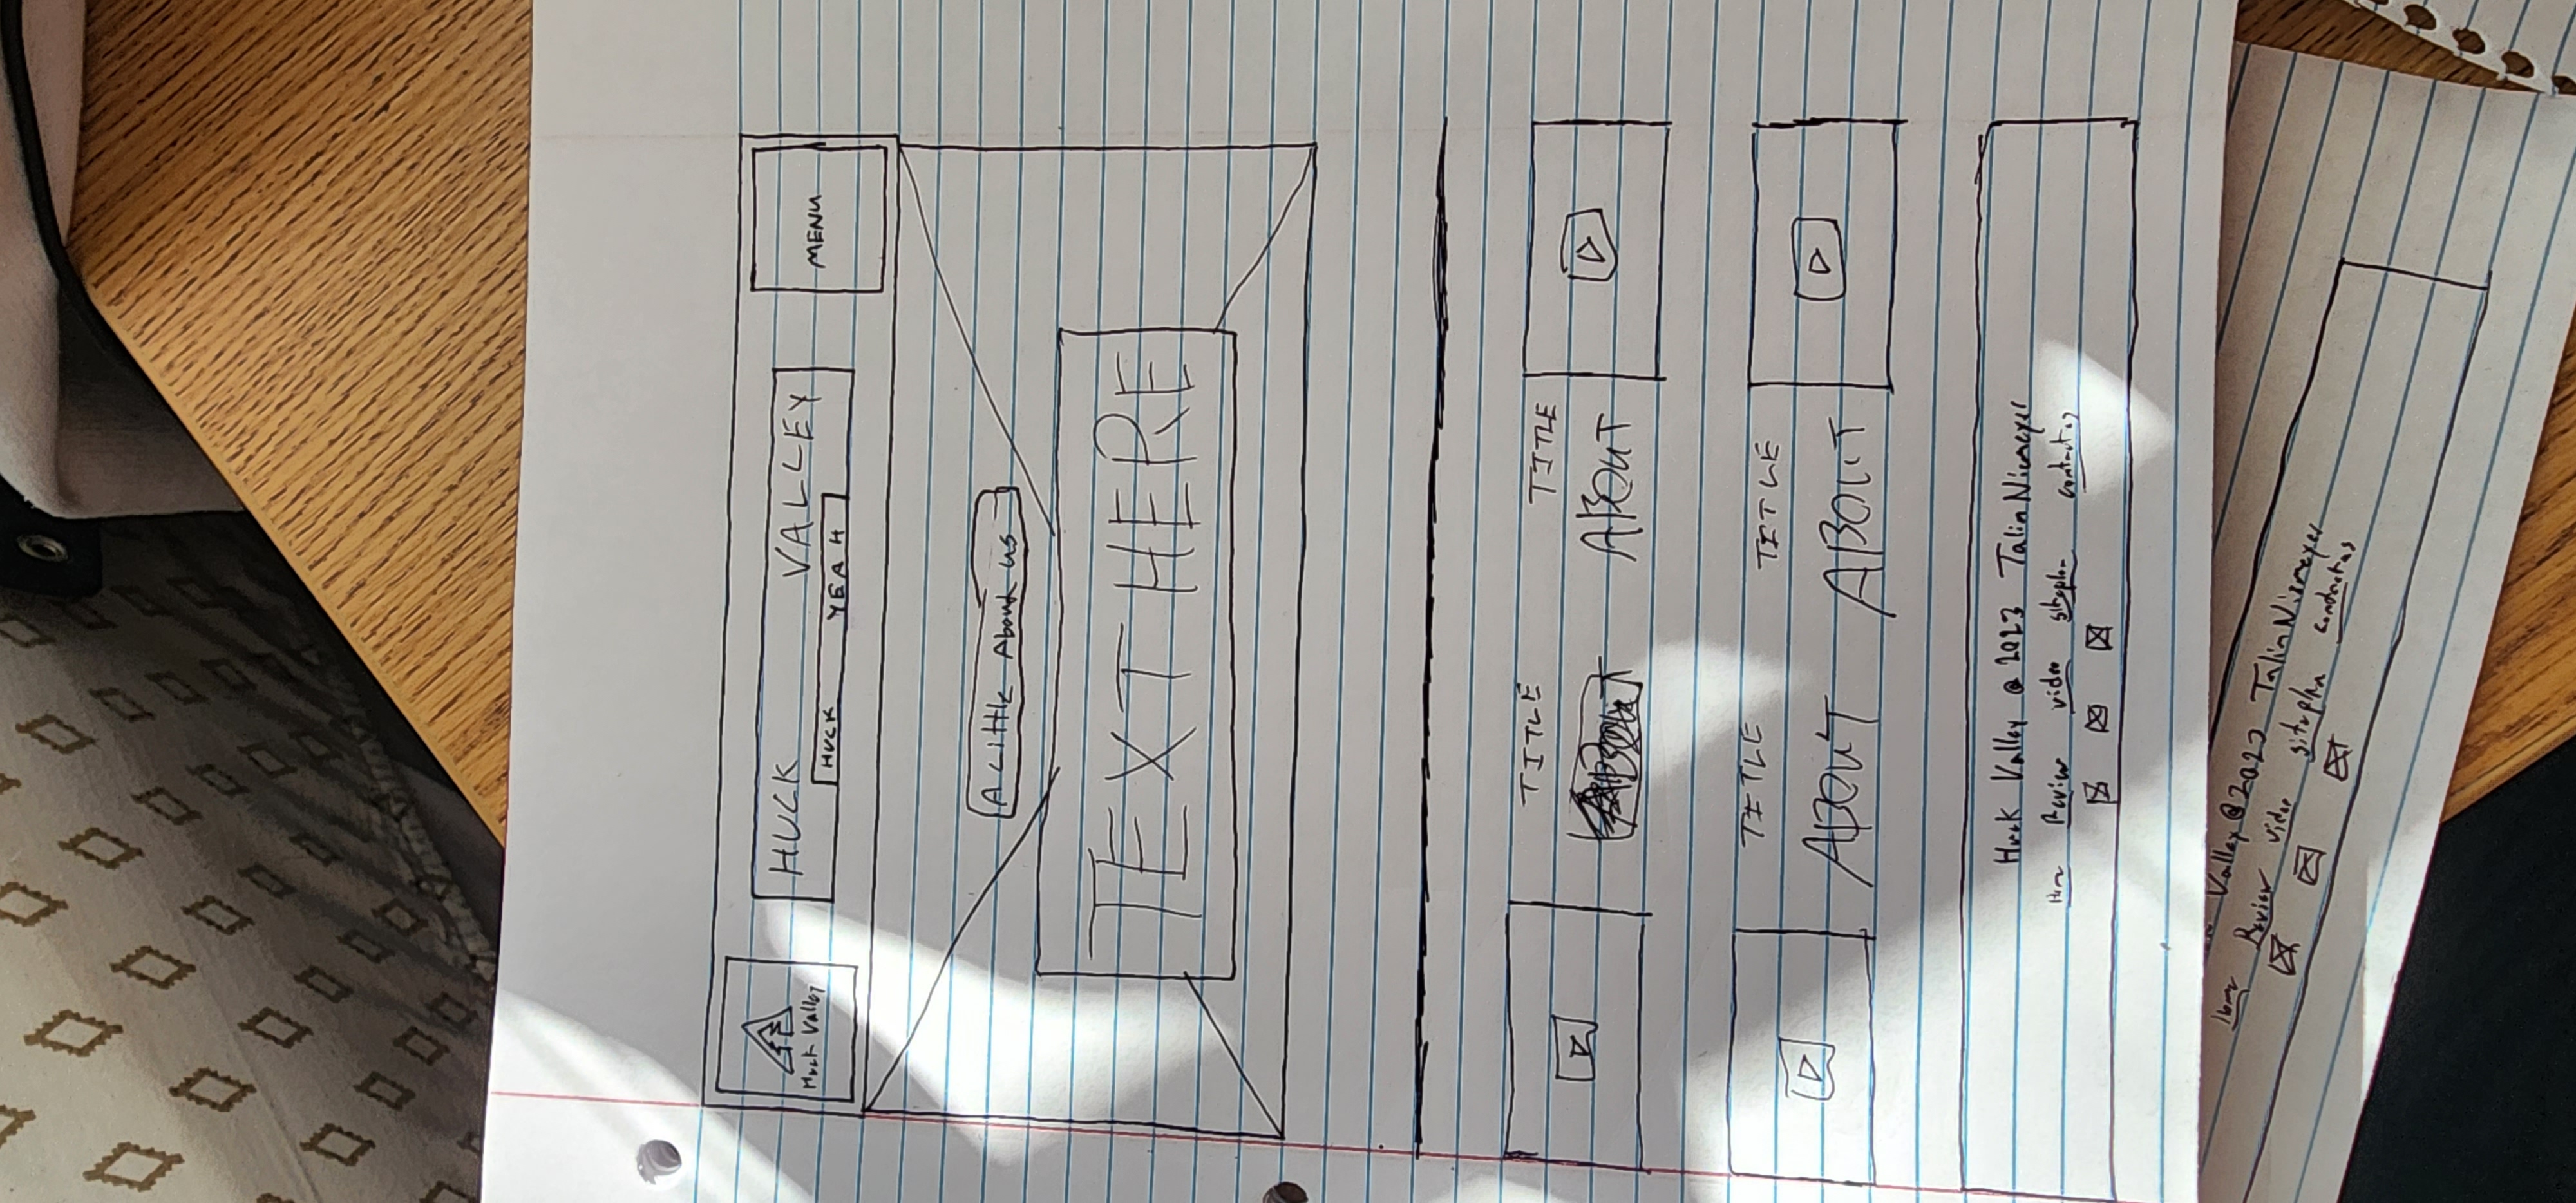 Huck Valley
HUCK VALLEY
HUCK YEAH
MENU
A Little About us
TEXT HERE
TITLE TITLE
ABOUT ABOUT
TITLE TITLE
ABOUT ABOUT
Huck Valley @ 2023 Talin Niemeyer
Review video siteplan contactus
Valley @ 2023 Talin Niemeyer
Home Review video siteplan contactus